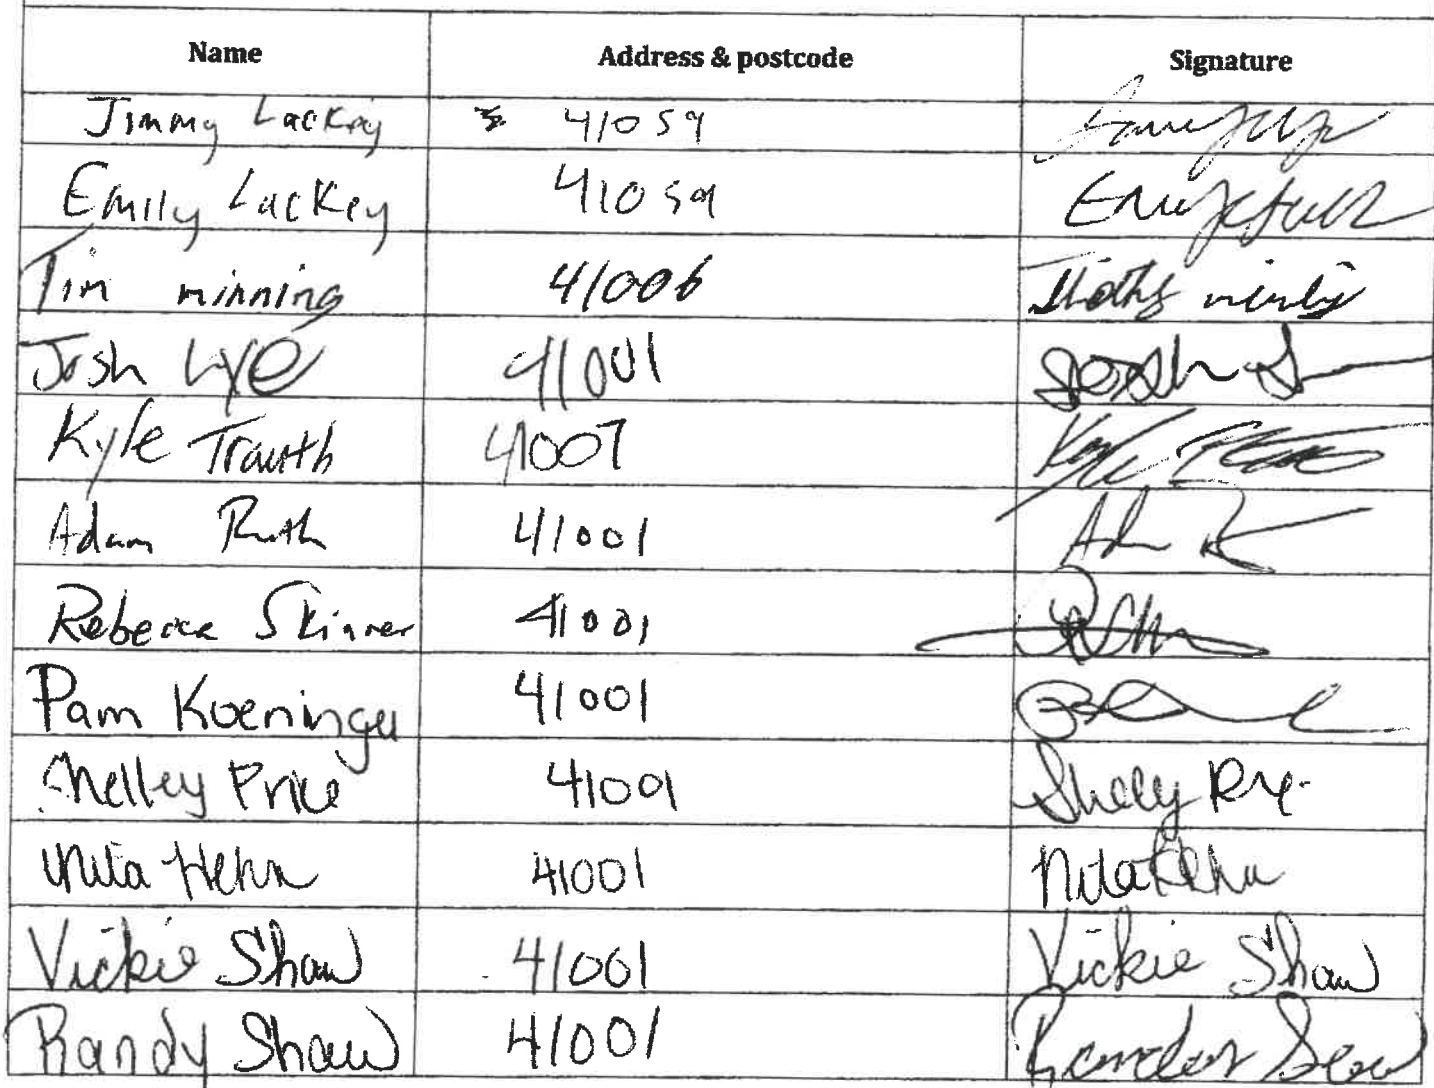 Name Address & postcode Signature
Jimmy Lackey 41059
Emily Lackey 41059
Tim minning 41006
Josh Lye 41001 Josh
Kyle Trauth 41007 Kyle
Adam Ruth 41001
Rebecca Skinner 41001
Pam Koeninger 41001
Shelley Price 41001
Nita Hehn 41001 Nita Hehn
Vickie Shaw 41001 Vickie Shaw
Randy Shaw 41001